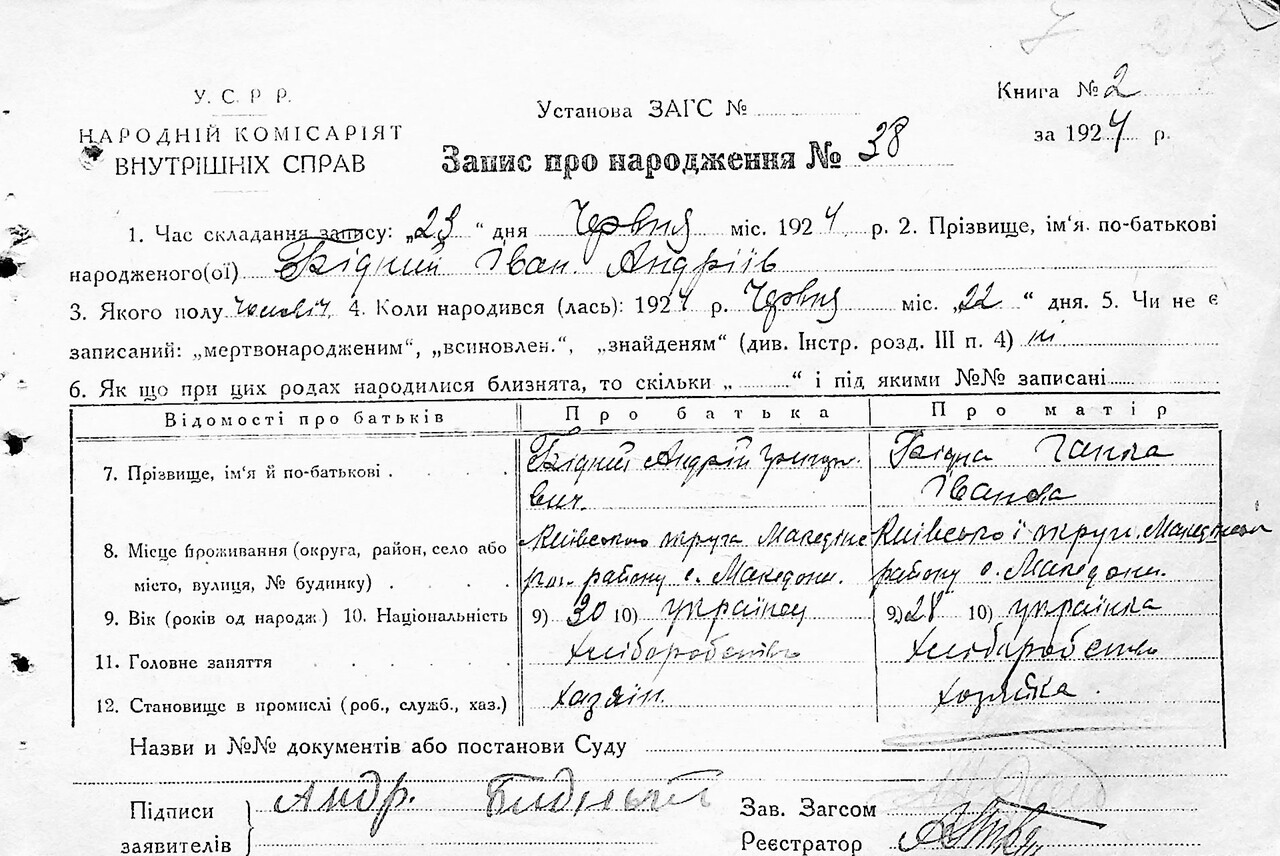 У. С. Р. Р.
НАРОДНІЙ КОМІСАРІЯТ
ВНУТРІШНІХ СПРАВ
Установа ЗАГС №
Книга № 2
за 1924 р.
Запис про народження № 38
1. Час складання запису: „23 “ дня Червня міс. 1924 р. 2. Прізвище, ім‘я. по-батькові
народженого(ої) Бідний Іван Андріів
3. Якого полу чоловіч 4. Коли народився (лась): 1924 р. Червня міс. „22 “ дня. 5. Чи не є
записаний: „мертвонародженим“, „всиновлен.“, „знайденям“ (див. Інстр. розд. III п. 4) ні
6. Як що при цих родах народилися близнята, то скільки „ “ і під якими №№ записані
Відомості про батьків Про батька Про матір
7. Прізвище, ім‘я й по-батькові . Бідний Андрій Григор- Бідна Ганна
вич. Іванова
8. Місце проживання (округа, район, село або Київсько округа Київської округи
місто, вулиця, № будинку) . району с. Македони. району с. Македони.
9. Вік (років од народж) 10. Національність 9) 30 10) українец 9) 28 10) українка
11. Головне заняття хліборобство хліборобство
12. Становище в промислі (роб., служб., хаз.) хазяін. хозяйка.
Назви и №№ документів або постанови Суду
Підписи Андр. Бидный Зав. Загсом
заявителів Реєстратор